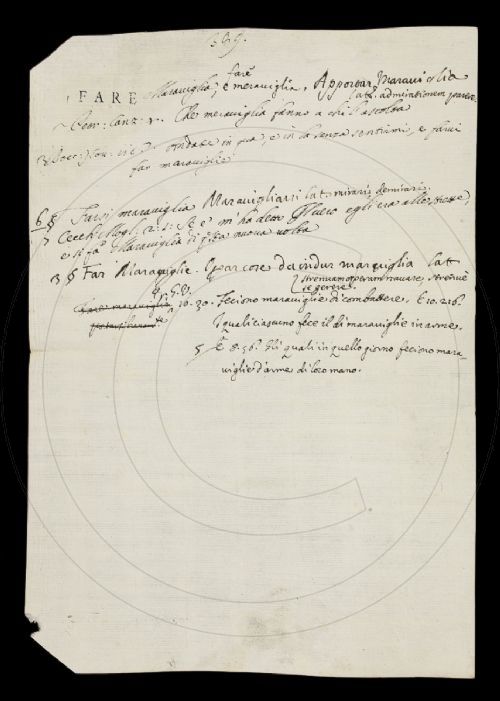 fare
FARE Maraviglia, e meraviglia. Apportar Maraviglia
lat. admirationem parere.
Che meraviglia fanno a chi l'ascolta
far maraviglie
6 § Farsi maraviglia Maravigliarsi lat. mirari demirari.
7 Cecch. Mogl. 2. 1: Se e' m'ha detto il vero egli era alle strette,
e si fa Maraviglia di questa nuova volta
3 § Far Maraviglie. Operar cose da indur maraviglia lat.
strenuam operam navare, strenuè
se gerere.
G. V.
fare maraviglia 10. 30. Feciono maraviglie di combattere. E 10. 226.
I quali ciascuno fece il dì maraviglie in arme.
5 E 8. 56. Gli quali in quello giorno feciono mara-
viglie d'arme di loro mano.